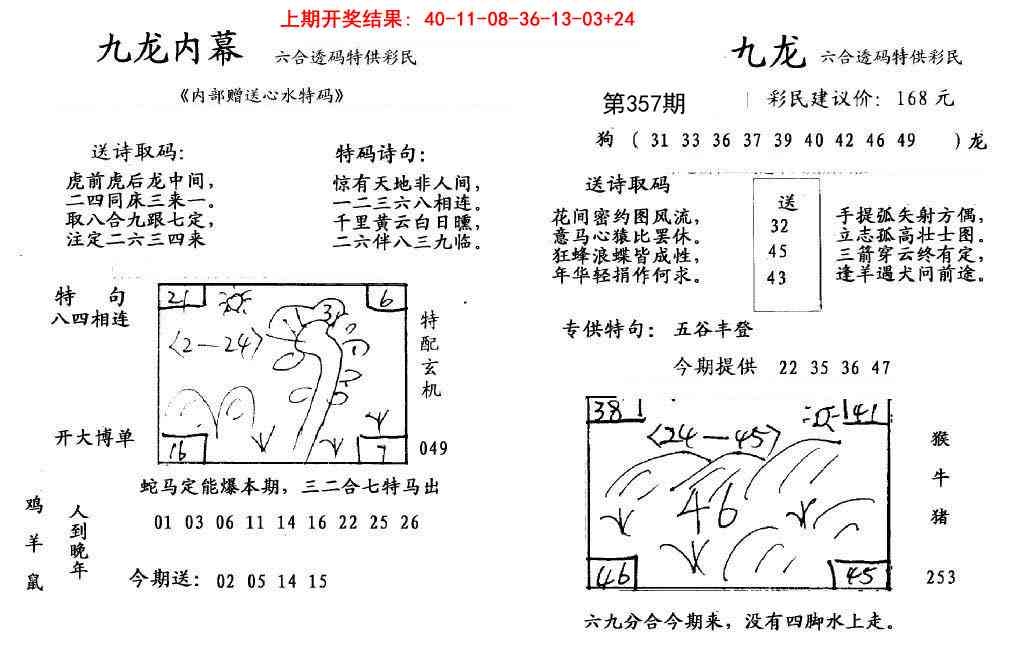 上期开奖结果: 40-11-08-36-13-03+24
九龙内幕 六合透码特供彩民
《内部赠送心水特码》
送诗取码:
虎前虎后龙中间，
二四同床三来一。
取八合九跟七定，
注定二六三四来
特码诗句:
惊有天地非人间，
一二三六八相连。
千里黄云白日曛，
二六伴八三九临。
特 句
八四相连
开大博单
21
6
〈2—24〉
3
16
7
特配玄机
049
蛇马定能爆本期，三二合七特马出
鸡羊鼠
人到晚年
01 03 06 11 14 16 22 25 26
今期送: 02 05 14 15
九龙 六合透码特供彩民
第357期
彩民建议价: 168元
狗 ( 31 33 36 37 39 40 42 46 49 ) 龙
送诗取码
花间密约图风流，
意马心猿比罢休。
狂蜂浪蝶皆成性，
年华轻捐作何求。
送
32
45
43
手提弧矢射方偶，
立志孤高壮士图。
三箭穿云终有定，
逢羊遇犬问前途。
专供特句: 五谷丰登
今期提供 22 35 36 47
38
41
〈24—45〉
46
46
45
猴
牛
猪
253
六九分合今期来，没有四脚水上走。